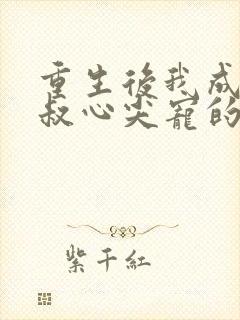 重生後我成
叔心尖寵的
紫千紅